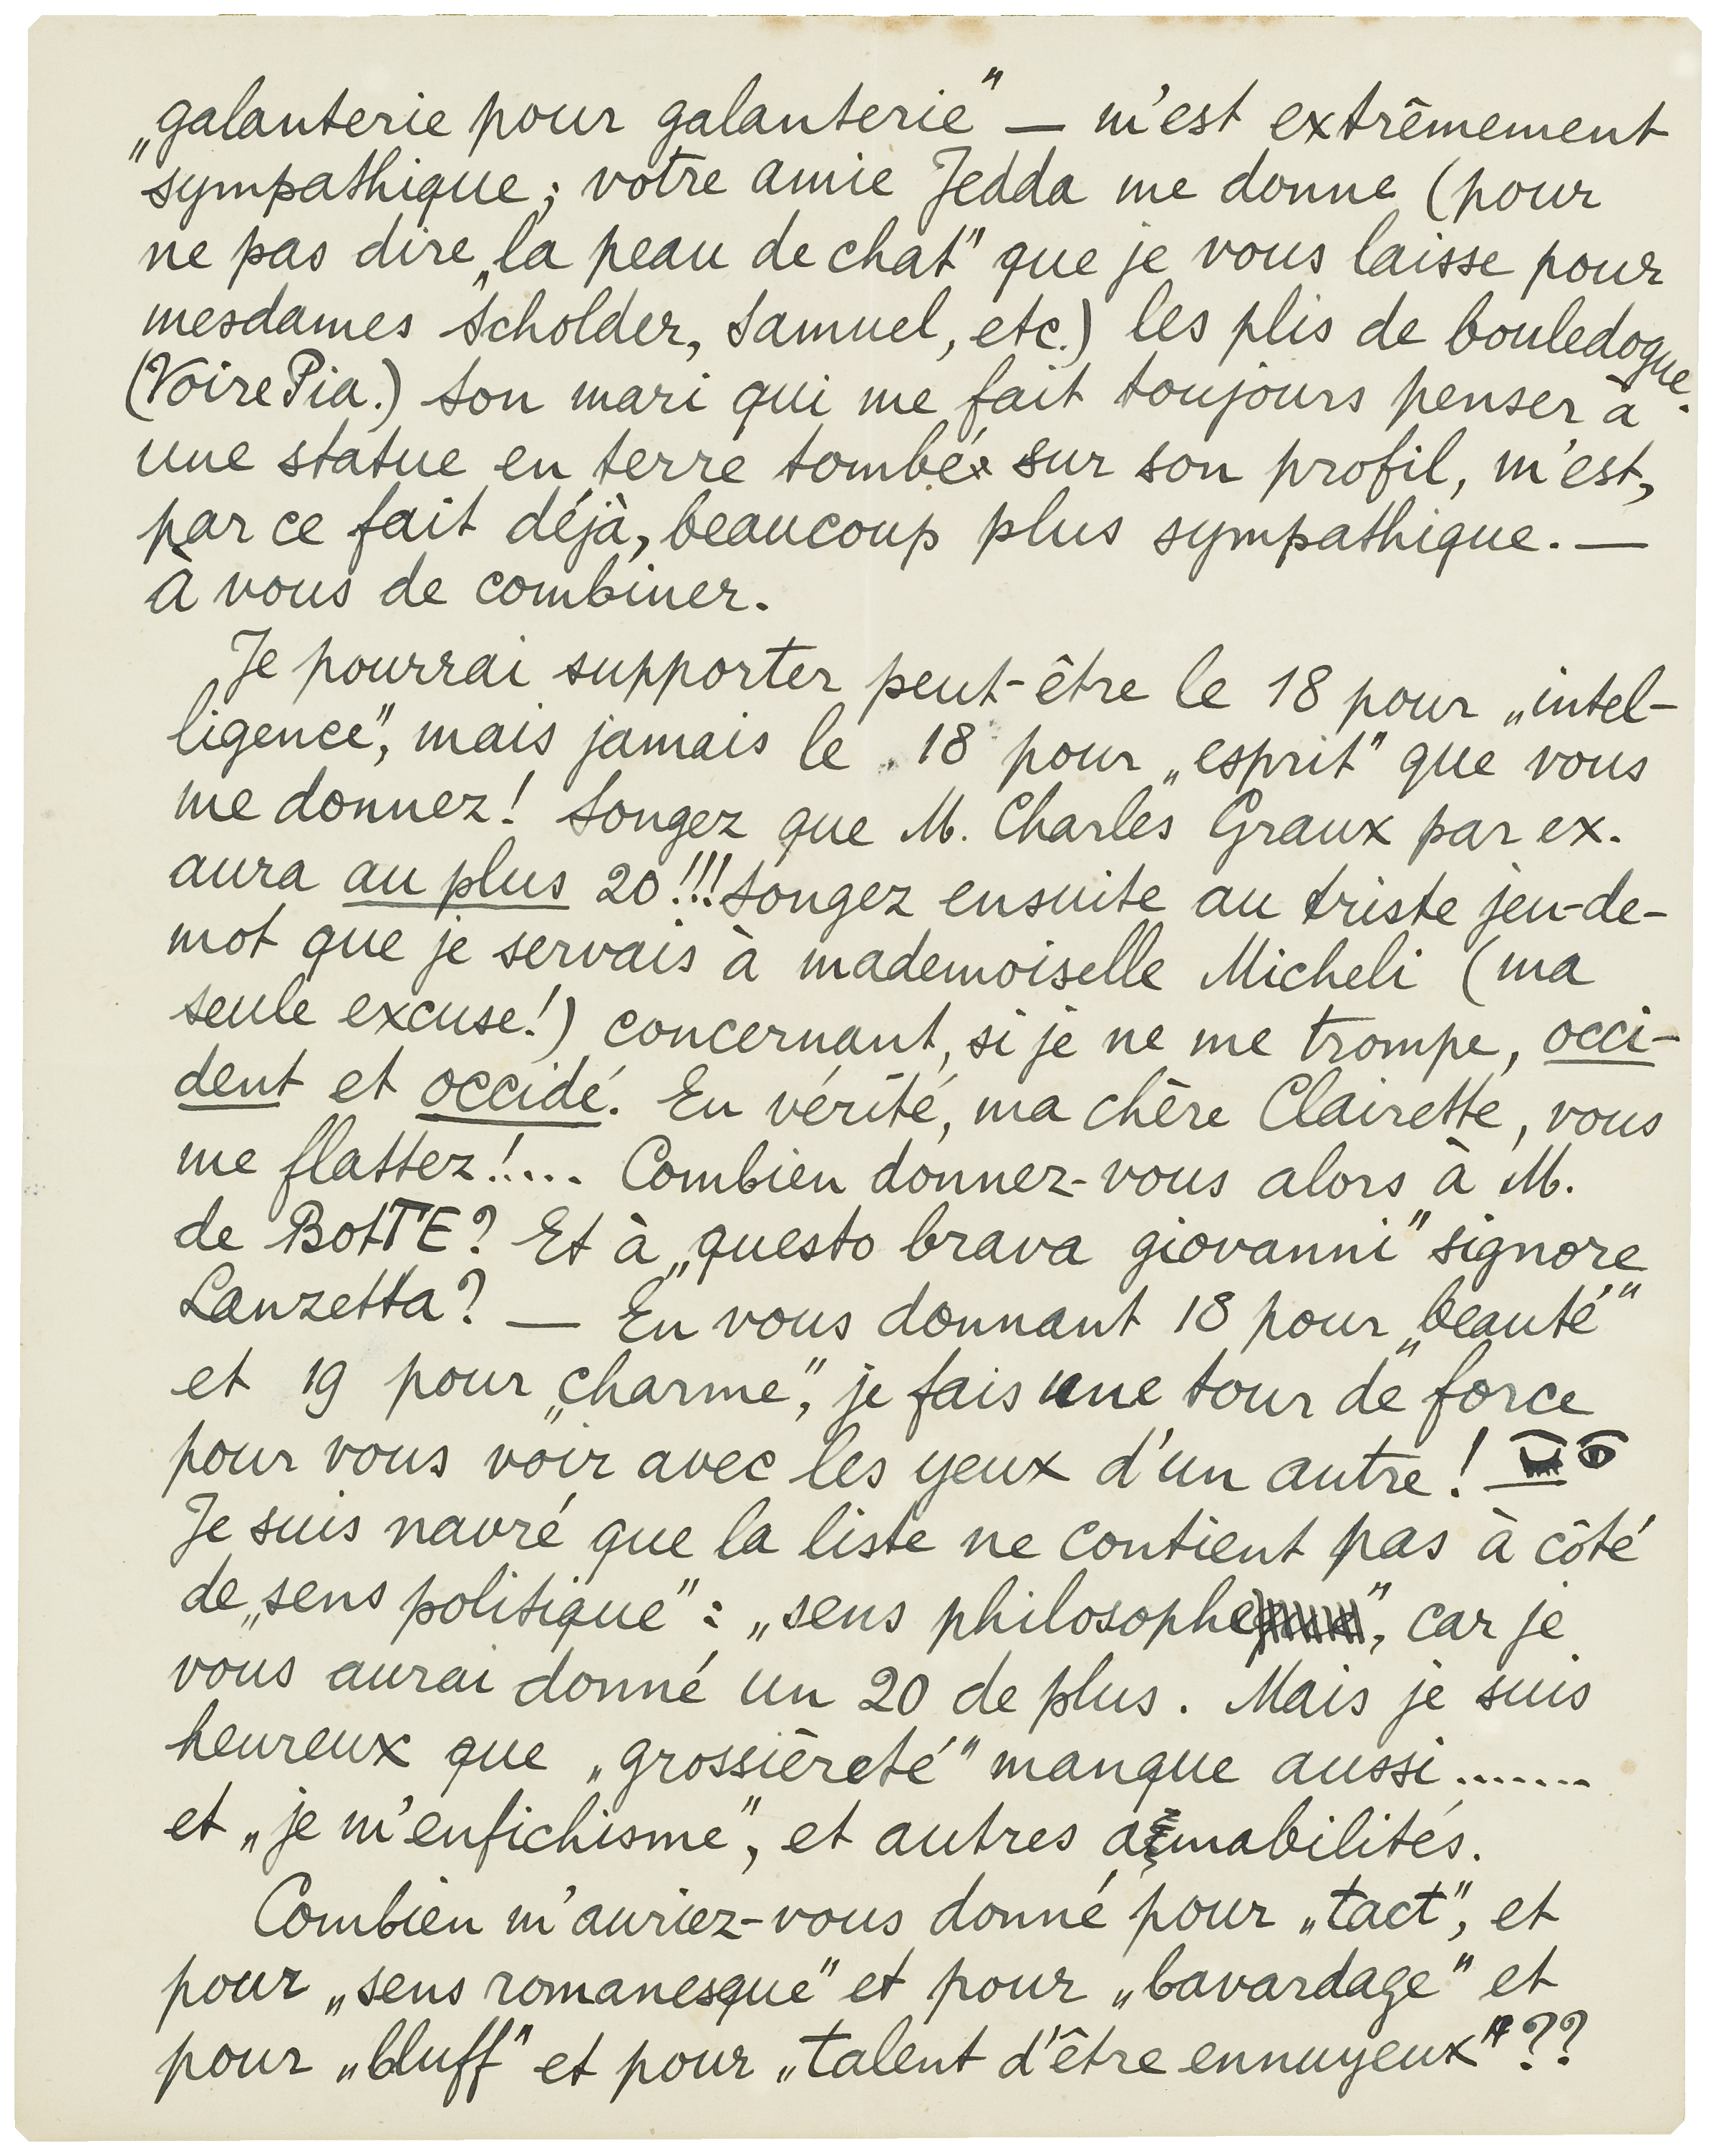 „galanterie pour galanterie" — m'est extrêmement
sympathique; votre amie Jedda me donne (pour
ne pas dire „la peau de chat" que je vous laisse pour
mesdames Scholder, Samuel, etc.) les plis de bouledogue.
(Voire Pia.) Son mari qui me fait toujours penser à
une statue en terre tombée sur son profil, m'est,
par ce fait déjà, beaucoup plus sympathique. —
À vous de combiner.
Je pourrai supporter peut-être le 18 pour „intel-
ligence", mais jamais le 18 pour „esprit" que vous
me donnez! Songez que M. Charles Graux par ex.
aura au plus 20!!! Songez ensuite au triste jeu-de-
mot que je servais à mademoiselle Micheli (ma
seule excuse!) concernant, si je ne me trompe, occi-
dent et occidé. En vérité, ma chère Clairette, vous
me flattez!.... Combien donnez-vous alors à M.
de BotTE? Et à „questo brava giovanni" signore
Lanzetta? — En vous donnant 18 pour „beauté"
et 19 pour „charme", je fais une tour de force
pour vous voir avec les yeux d'un autre! —
Je suis navré que la liste ne contient pas à côté
de „sens politique": „sens philosophe", car je
vous aurai donné un 20 de plus. Mais je suis
heureux que „grossièreté" manque aussi.......
et „je m'enfichisme", et autres amabilités.
Combien m'auriez-vous donné pour „tact", et
pour „sens romanesque" et pour „bavardage" et
pour „bluff" et pour „talent d'être ennuyeux"??